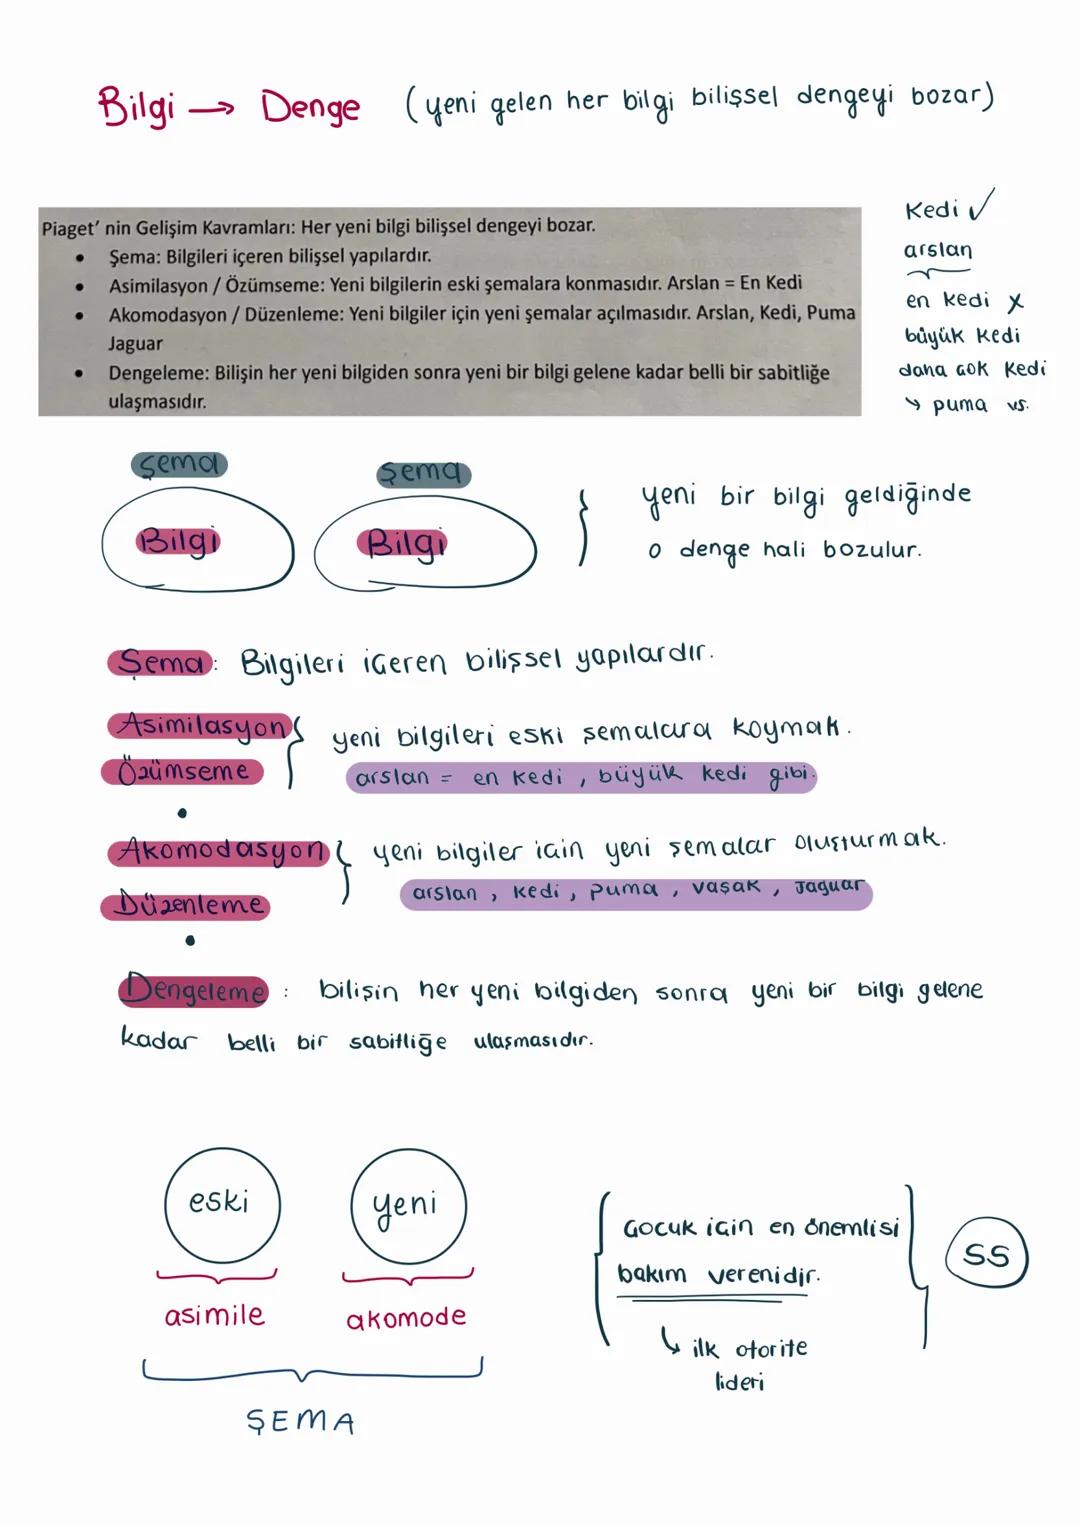 Bilgi → Denge (yeni gelen her bilgi bilişsel dengeyi bozar)
Piaget' nin Gelişim Kavramları: Her yeni bilgi bilişsel dengeyi bozar.
• Şema: Bilgileri içeren bilişsel yapılardır.
• Asimilasyon / Özümseme: Yeni bilgilerin eski şemalara konmasıdır. Arslan = En Kedi
• Akomodasyon / Düzenleme: Yeni bilgiler için yeni şemalar açılmasıdır. Arslan, Kedi, Puma
Jaguar
• Dengeleme: Bilişin her yeni bilgiden sonra yeni bir bilgi gelene kadar belli bir sabitliğe
ulaşmasıdır.
Kedi ✓
arslan
en kedi x
büyük kedi
daha çok kedi
↳ puma vs.
şema
şema
Bilgi
Bilgi
yeni bir bilgi geldiğinde
o denge hali bozulur.
Şema: Bilgileri içeren bilişsel yapılardır.
Asimilasyon
Özümseme
yeni bilgileri eski şemalara koymak.
arslan = en kedi, büyük kedi gibi.
•
Akomodasyon
Düzenleme
yeni bilgiler için yeni şemalar oluşturmak.
arslan, kedi, puma, vaşak, Jaguar
•
Dengeleme: bilişin her yeni bilgiden sonra yeni bir bilgi gelene
kadar belli bir sabitliğe ulaşmasıdır.
eski
yeni
asimile
akomode
ŞEMA
Çocuk için en önemlisi
bakım verenidir.
↳ ilk otorite
lideri
SS